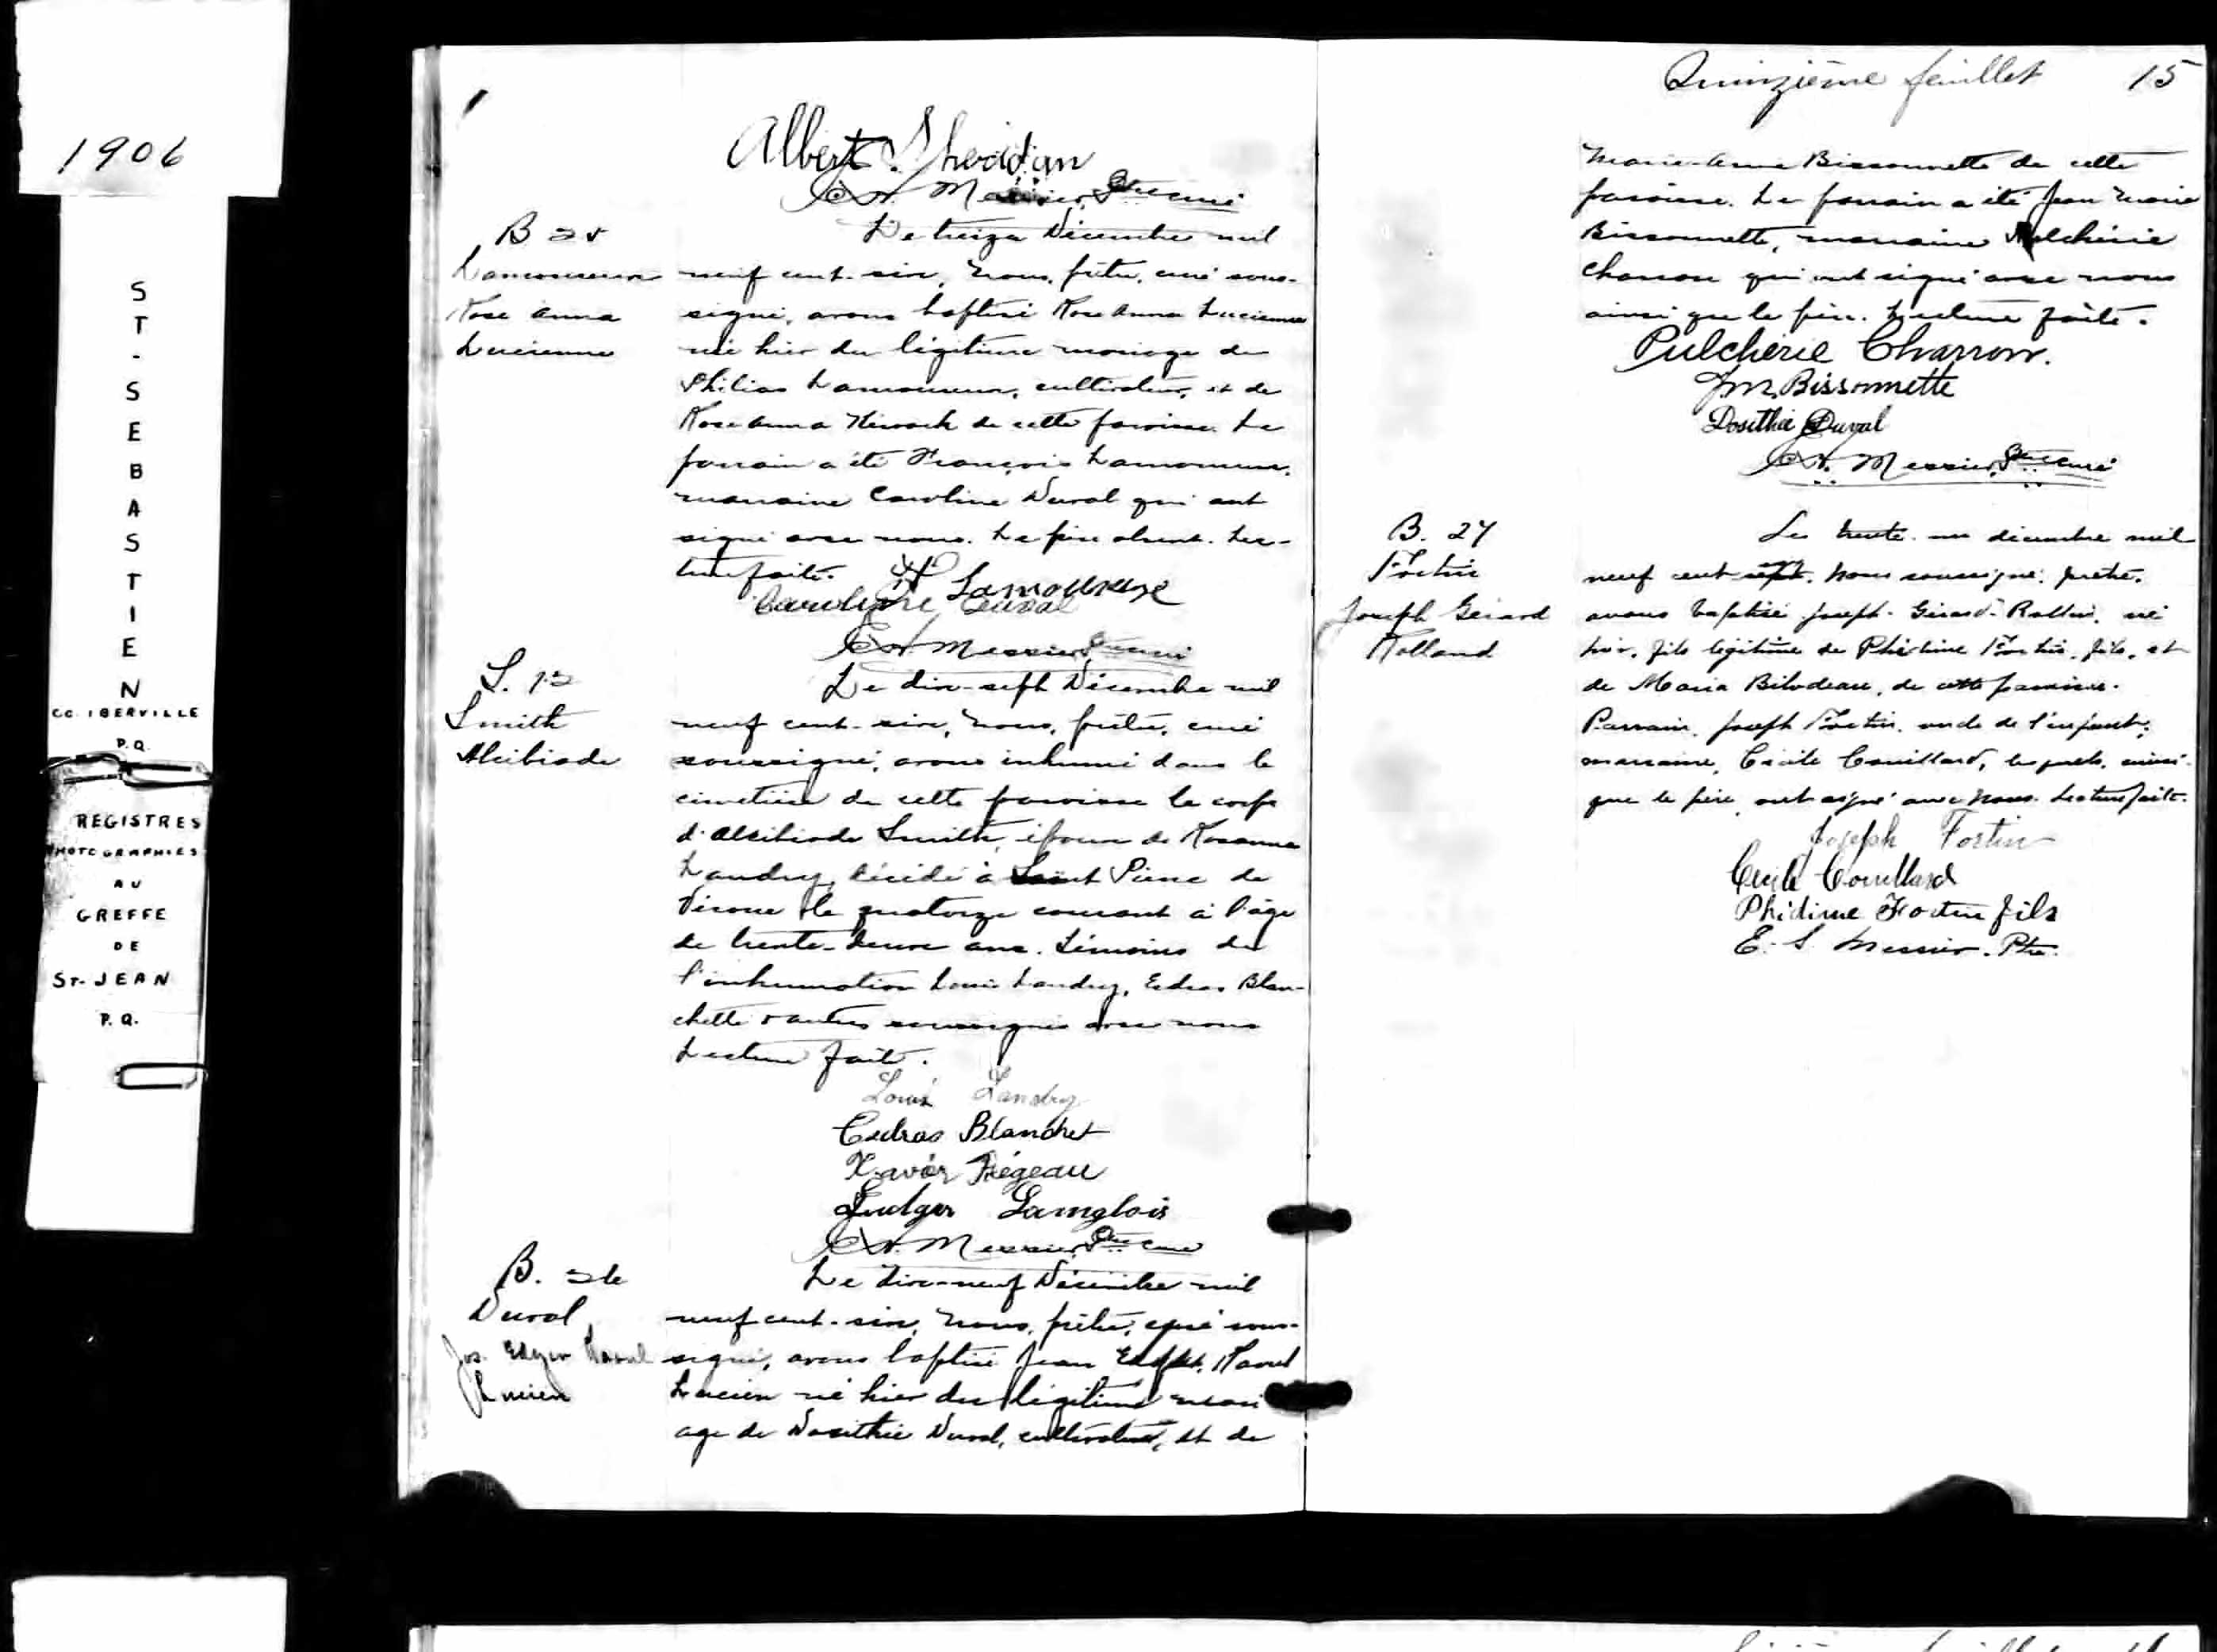 1906
ST-SEBASTIEN
CO. IBERVILLE
P.Q.
REGISTRES
PHOTOGRAPHIES
AU
GREFFE
DE
ST-JEAN
P.Q.
Albert Sheridan
Messier Ptre curé
B 25
Lamoureux
Rose Anna
Lucienne
Le treize Décembre mil
neuf cent-six, Nous, prêtre, curé sous-
signé, avons baptisé Rose Anna Lucienne
née hier du légitime mariage de
Philias Lamoureux, cultivateur, et de
Rose Anna de cette paroisse. Le
parrain a été François Lamoureux,
marraine Caroline Duval qui ont
signé avec nous. Le père absent. Lec-
ture faite.
Lamoureux
Caroline Duval
Messier Ptre curé
S. 12
Smith
Alcibiade
Le dix-sept Décembre mil
neuf cent-six, Nous, prêtre, curé
soussigné, avons inhumé dans le
cimetière de cette paroisse le corps
d'Alcibiade Smith, époux de Rosanna
Landry, décédé à Saint Pierre de
Vérone le quatorze courant à l'âge
de trente-deux ans. Témoins de
l'inhumation Louis Landry, Esdras Blan-
chette & autres soussignés avec nous
Lecture faite.
Louis Landry
Esdras Blanchet
Xavier Frégeau
Ludger Langlois
Messier Ptre curé
B. 26
Duval
Jos. Edgar Raoul
Lucien
Le dix-neuf Décembre mil
neuf cent-six, Nous, prêtre, curé sous-
signé, avons baptisé Jean Raoul
Lucien né hier du légitime mari
age de Dosithée Duval, cultivateur, et de
Quinzième feuillet 15
Marie-Anna Bissonnette de cette
paroisse. Le parrain a été Jean Marie
Bissonnette, marraine Pulchérie
Charron qui ont signé avec nous
ainsi que le père. Lecture faite.
Pulchérie Charron.
J.M. Bissonnette
Dosithée Duval
Messier Ptre curé
B. 27
Fortin
Joseph Gérard
Rolland
Le trente-un décembre mil
neuf cent sept, nous soussigné, prêtre,
avons baptisé Joseph-Gérard-Rolland, né
hier, fils légitime de Phidime Fortin, fils, et
de Maria Bilodeau, de cette paroisse.
Parrain, Joseph Fortin, oncle de l'enfant;
marraine, Cécile Couillard, lesquels, ainsi
que le père, ont signé avec nous. Lecture faite.
Joseph Fortin
Cecile Couillard
Phidime Fortin fils
E. S. Messier. Ptre.